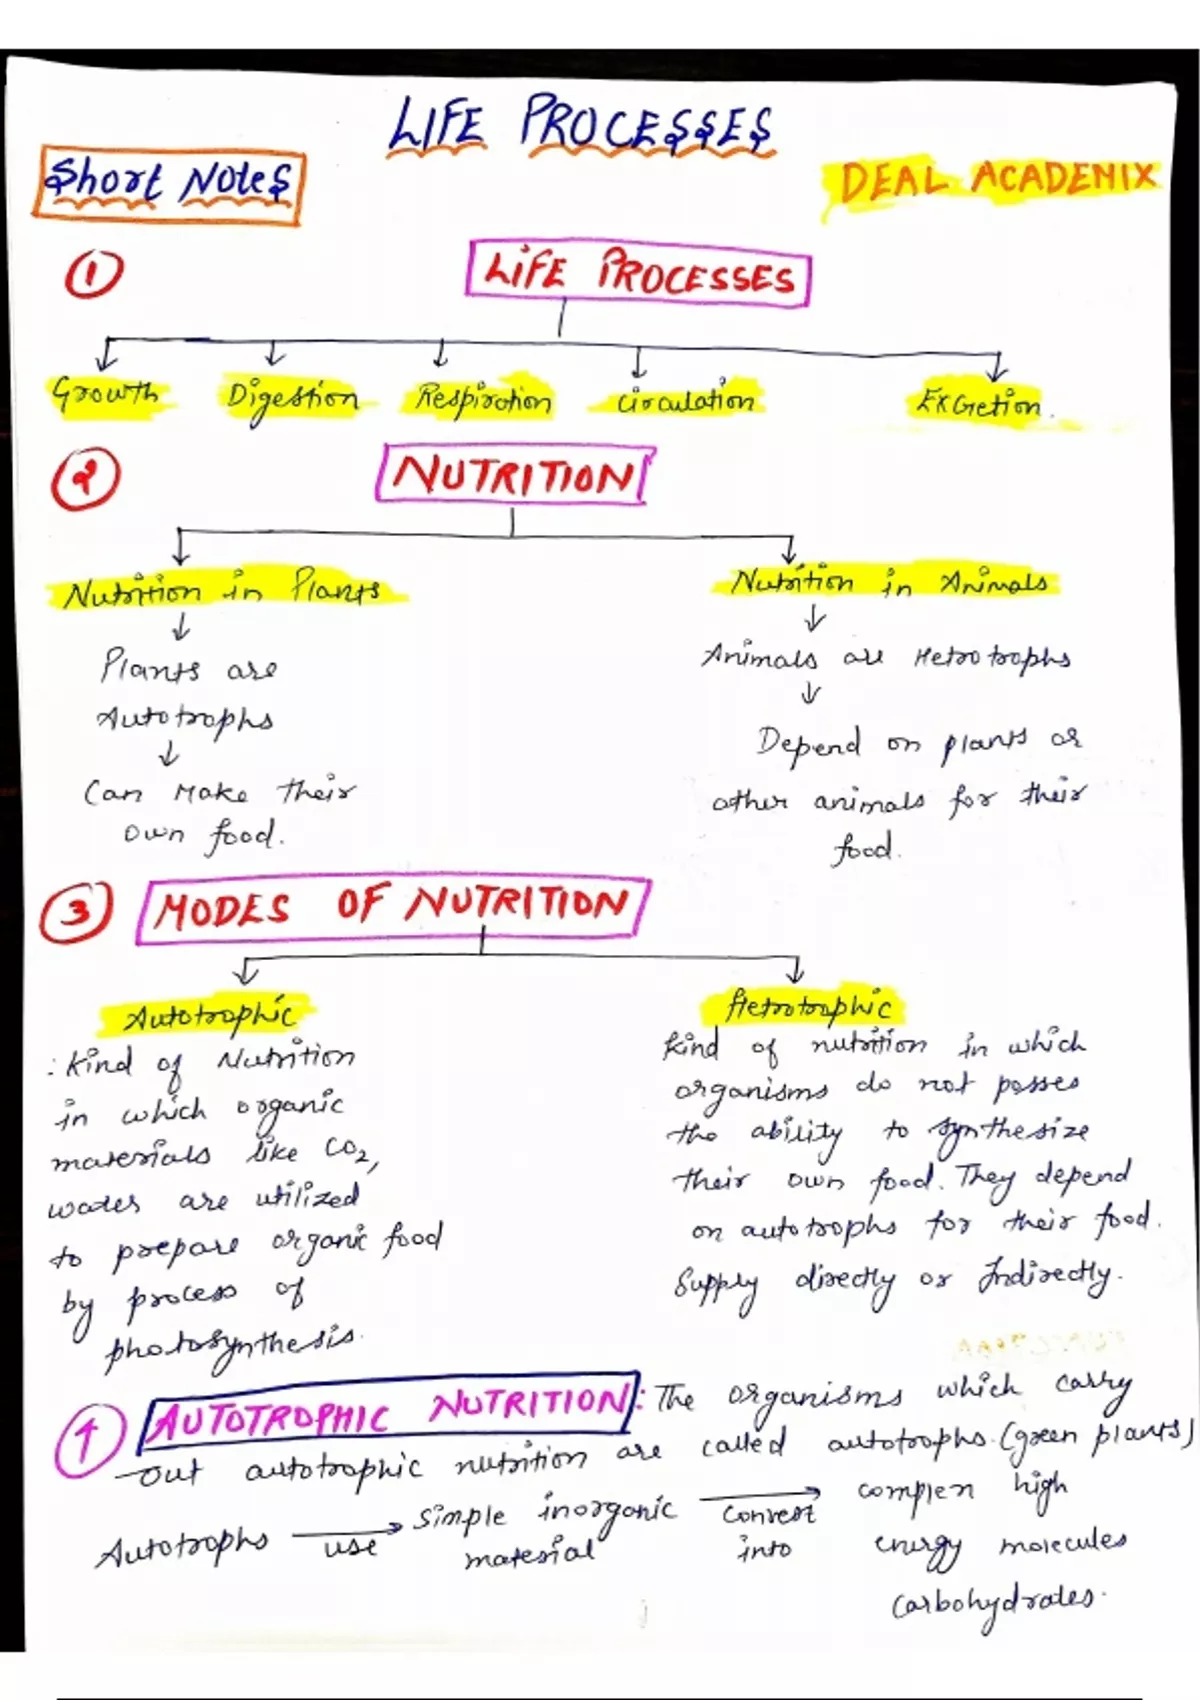 LIFE PROCESSES
Short Notes
DEAL ACADEMIX
1
LIFE PROCESSES
Growth Digestion Respiration Circulation Excretion.
2
NUTRITION
Nutrition in Plants
Plants are
Autotrophs
Can Make their
own food.
Nutrition in Animals
Animals are Hetrotrophs
Depend on plants or
other animals for their
food.
3
MODES OF NUTRITION
Autotrophic
: Kind of Nutrition
in which organic
materials like CO2,
water are utilized
to prepare organic food
by process of
photosynthesis.
Hetrotrophic
Kind of nutrition in which
organisms do not posses
the ability to synthesize
their own food. They depend
on autotrophs for their food.
Supply directly or Indirectly.
AUTOTROPHIC NUTRITION : The organisms which carry
out autotrophic nutrition are called autotrophs. (green plants)
Autotrophs use simple inorganic material convert into complex high energy molecules
carbohydrates.